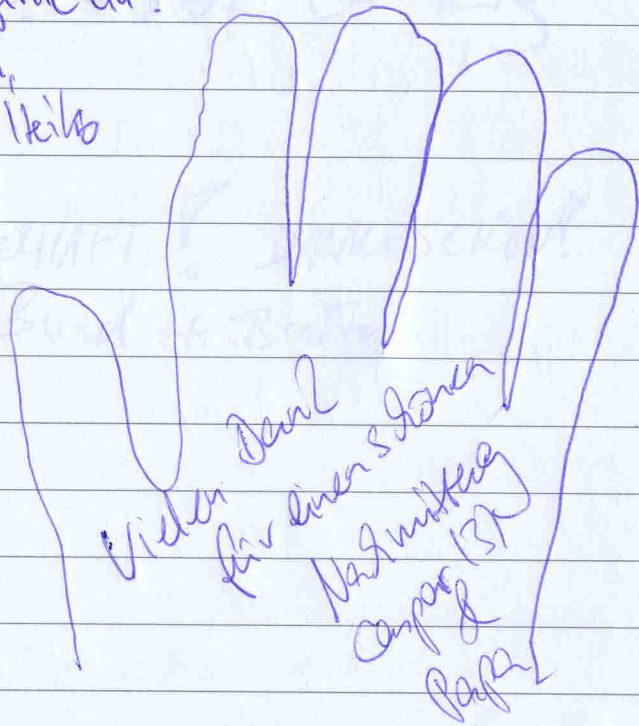 Heiko
Vielen Dank
für einen schönen
Nachmittag
Caspar (3)
&
Papa